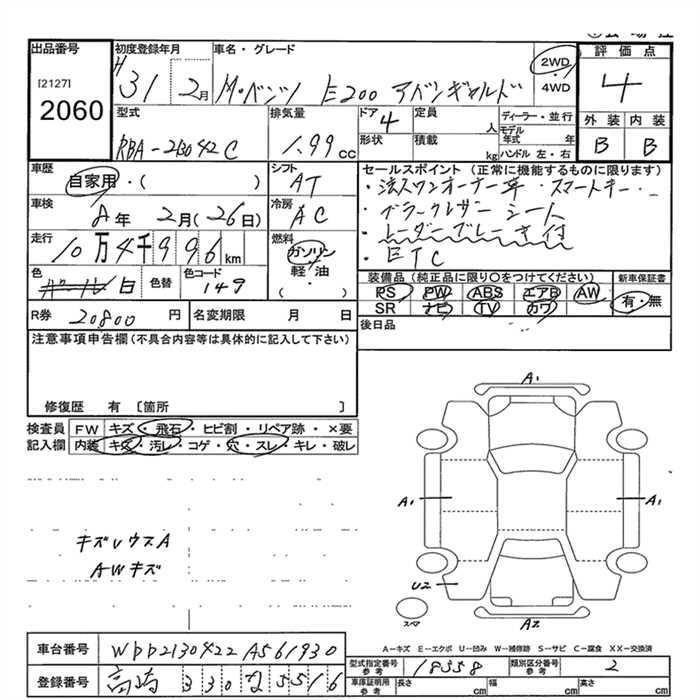 出品番号 初度登録年月 車名・グレード 2WD・4WD 評価点
[2127]
2060
H31 2月 M・ベンツ E200 アバンギャルド 4
型式 排気量 ドア 4 定員 人 ディーラー・並行 外装 内装
形状 積載 kg モデル年式 年
RBA-213042C 1.99cc ハンドル 左・右 B B
車歴 シフト セールスポイント (正常に機能するものに限ります)
自家用・( ) AT ・法人ワンオーナー車 ・スマートキー・
車検 冷房 ・ブラックレザーシート
8年 2月(26日) AC ・レーダーブレーキ付
走行 燃料 ・ETC
10万4千996km ガソリン
軽・油
( ・ )
色 白 色替 色コード 149
装備品(純正品に限り〇をつけてください) 新車保証書
PS PW ABS エアB AW 有・無
SR ナビ TV カワ
R券 20800円 名変期限 月 日 後日品
注意事項申告欄(不具合内容等は具体的に記入して下さい)
修復歴 有 [箇所 ]
検査員 FW キズ・飛石・ヒビ割・リペア跡・×要
記入欄 内装 キズ・汚レ・コゲ・穴・スレ・キレ・破レ
A1
A1 A1
キズレウスA
AWキズ
U2
スペア A2
A-キズ E-エクボ U-凹み W-補修跡 S-サビ C-腐食 XX-交換済
車台番号 WDD2130422A561930
型式指定番号 参考 18358 類別区分番号 参考 2
登録番号 高崎 330 な 5516
車庫証明用 参考 長さ cm 幅 cm 高さ cm